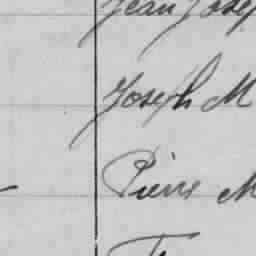 Jean Josep
Joseph M
Pierre M